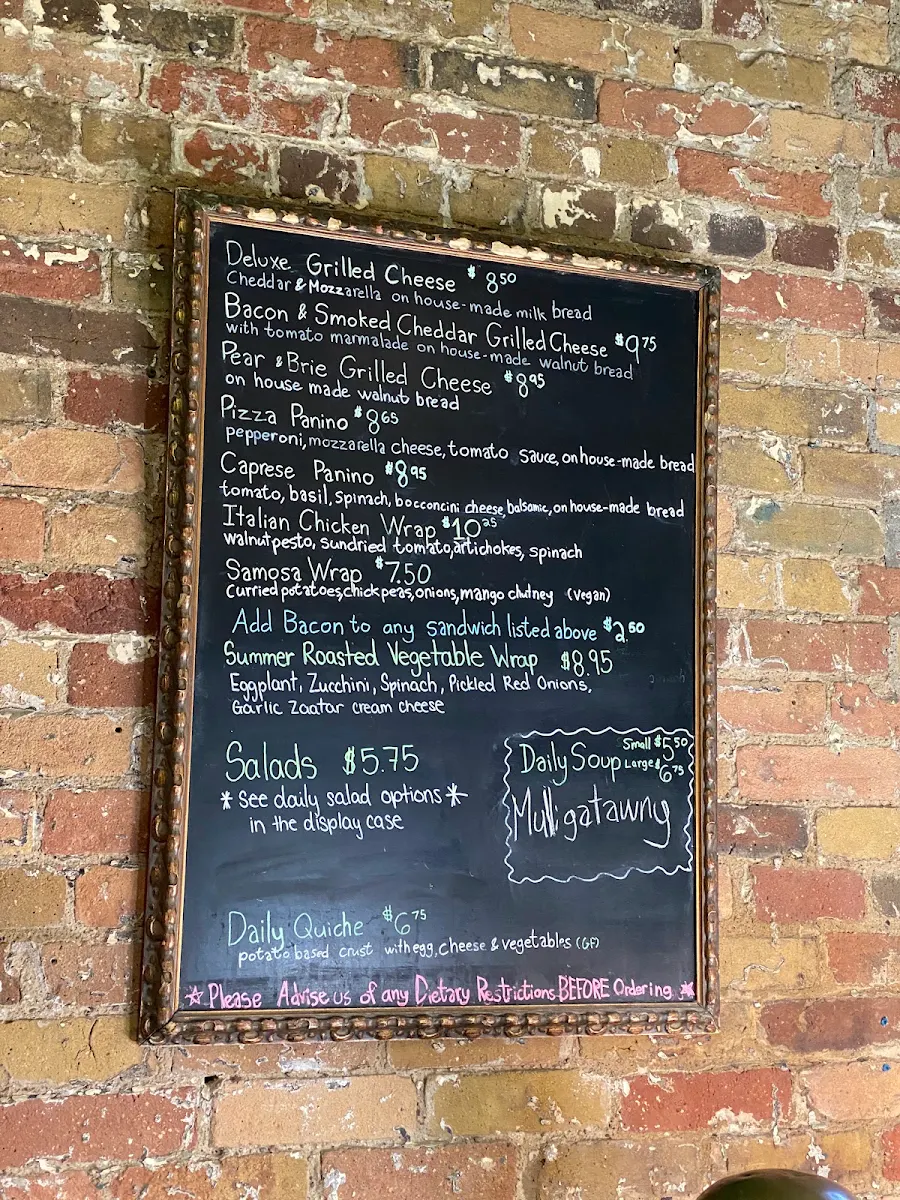 Deluxe Grilled Cheese $8.50
Cheddar & Mozzarella on house-made milk bread
Bacon & Smoked Cheddar Grilled Cheese $9.75
with tomato marmalade on house-made walnut bread
Pear & Brie Grilled Cheese $8.95
on house made walnut bread
Pizza Panino $8.65
pepperoni, mozzarella cheese, tomato sauce, on house-made bread
Caprese Panino $8.95
tomato, basil, spinach, bocconcini cheese, balsamic, on house-made bread
Italian Chicken Wrap $10.25
walnut pesto, sundried tomato, artichokes, spinach
Samosa Wrap $7.50
Curried potatoes, chick peas, onions, mango chutney (vegan)
Add Bacon to any sandwich listed above $2.50
Summer Roasted Vegetable Wrap $8.95
Eggplant, Zucchini, Spinach, Pickled Red Onions,
Garlic Zaatar cream cheese
Salads $5.75
*See daily salad options*
in the display case
Daily Soup Small $5.50
Large $6.75
Mulligatawny
Daily Quiche $6.75
potato based crust with egg, cheese & vegetables (GF)
☆ Please Advise us of any Dietary Restrictions BEFORE Ordering ☆